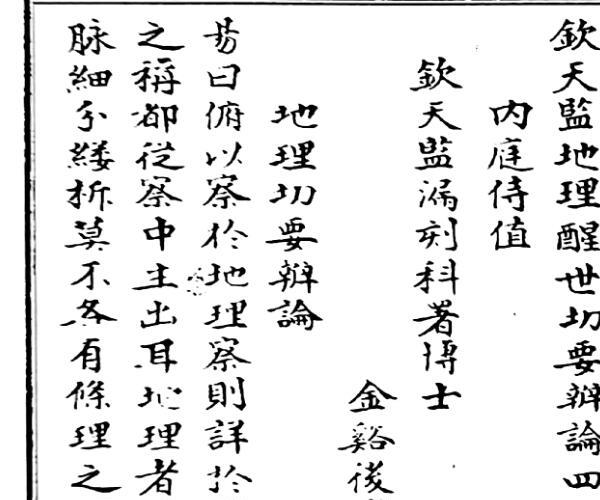 欽天監地理醒世切要辯論四
内庭侍值
欽天監漏刻科署博士
金谿後
地理切要辯論
易曰俯以察於地理察則詳於
之稱都從察中主出耳地理者
脉細分縷析莫不各有條理之